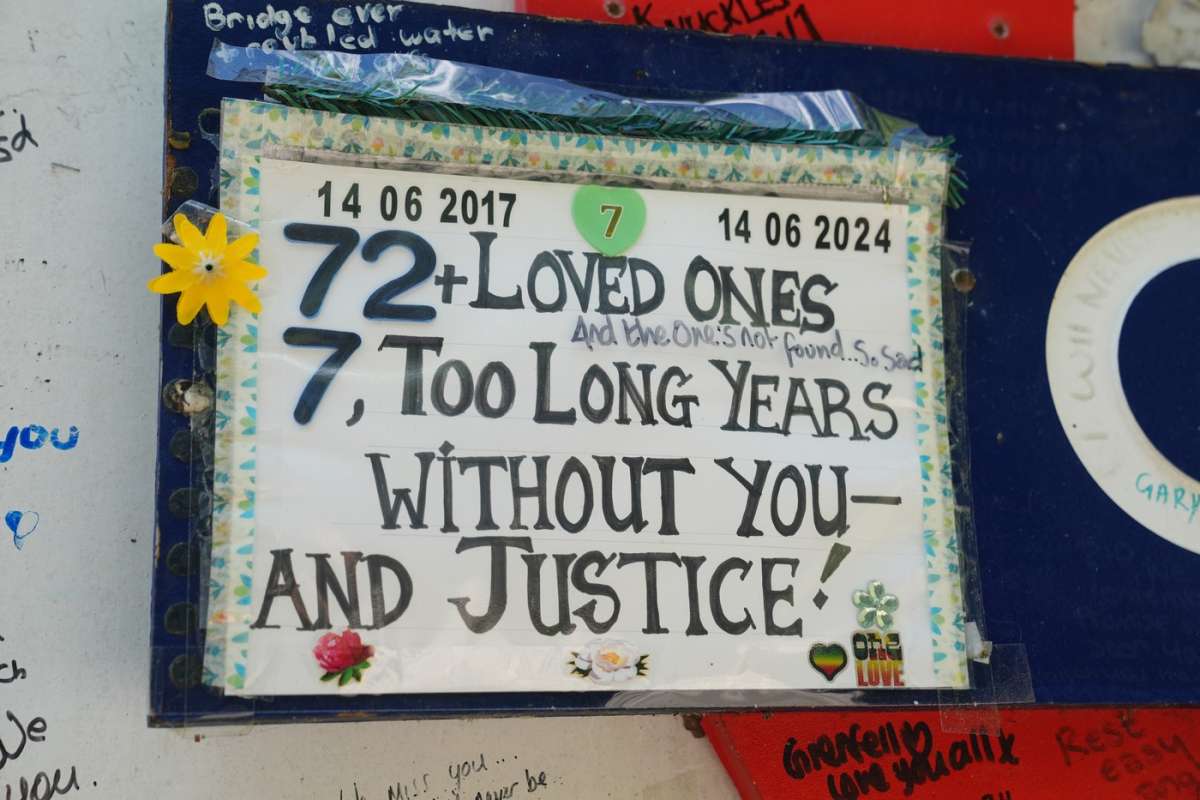 Bridge over
water
KNUCKLES
14 06 2017
7
14 06 2024
72+ LOVED ONES
And the One's not found... So Sad
7, TOO LONG YEARS
WITHOUT YOU—
AND JUSTICE!
one
LOVE
you
I WILL NEVER
GARY
We
you.
MISS YOU...
never be
Grenfell
Love you all x
Rest
easy